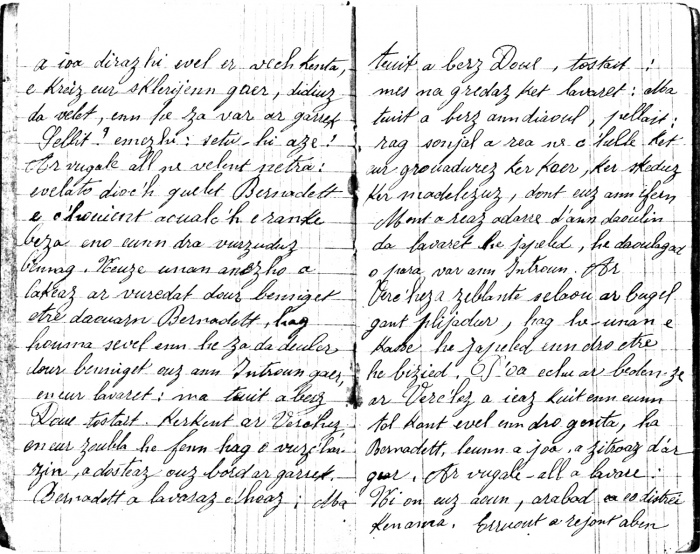 a ioa dirazhi evel er vech kenta,
e kreiz eur sklerijenn gaer, didiuz
da velet, enn he za var ar garrek
Sellit! emezhi: setu-hi aze!
Ar vugale all ne velent netra:
evelato dioc'h guelet Bernadett
e c'houient acualc'h e ranke
beza eno eunn dra vurzuduz
bennag. Neuze unan anezho a
lakeaz ar vuredat dour benniget
etre daouarn Bernadett, hag
houma sevel enn he za da deuler
dour benniget ouz ann Introun gaer,
en eur lavaret: ma tuit a berz
Doue tostait. Kerkent ar Verc'hez,
en eur zoubla he fenn hag o vuzc'hoar-
zin, a dosteaz ouz bord ar garrek.
Bernadett a lavaraz c'hoaz: Ma
tuit a berz Doue, tostait!
mes na gredaz ket lavaret: Ma
tuit a berz ann diaoul, pellait;
rag sonjal a rea ne c'helle ket
eur grouadurez ker kaer, ker skeduz
ker madelezuz, dont euz ann ifern
Mont a reaz adarre d'ann daoulin
da lavaret he japeled, he daoulagad
o para var ann Introun. Ar
Verc'hez a zeblante selaou ar bugel
gant plijadur, hag hi-unan e
kasse he japeled eunn dro etre
he biziad. P'oa echu ar bedenn-ze
ar Verc'hez a ieaz kuit enn eunn
tol kont evel enn dro genta, ha
Bernadett, leun a joa, a zitroaz d'ar
gear. Ar vugale-all a lavare:
Ni on euz aoun, arabad eo distrei
ken ama. Erruout a rejont aben